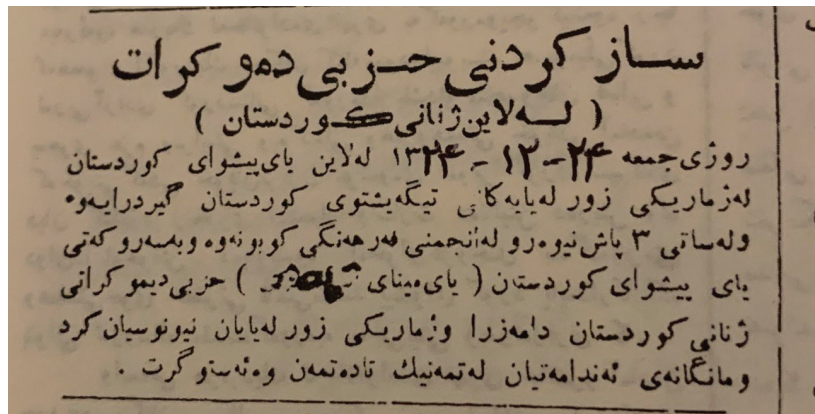 ساز کردنی حزبی دمو کرات
( لەلاین ژنانی کوردستان )
روژی جمعه ۲۴-۱۲-۱۳۲۴ لەلاین یای پیشوای کوردستان
لەژماریکی زور لەیایەکانی تیگەیشتوی کوردستان گیردرایەوە
ولەساتی ۳ پاش نیوەرو لەانجمنی فەرهەنگی کوبونەوە وبەسەروکەتی
یای پیشوای کوردستان ( یای مینای ) حزبی دیموکراتی
ژنانی کوردستان دامەزرا وژماریکی زور لەیایان نیونوسیان کرد
ومانگانەی ئەندامەتیان لەتمەنیك تادەتمەن وەئەستو گرت .